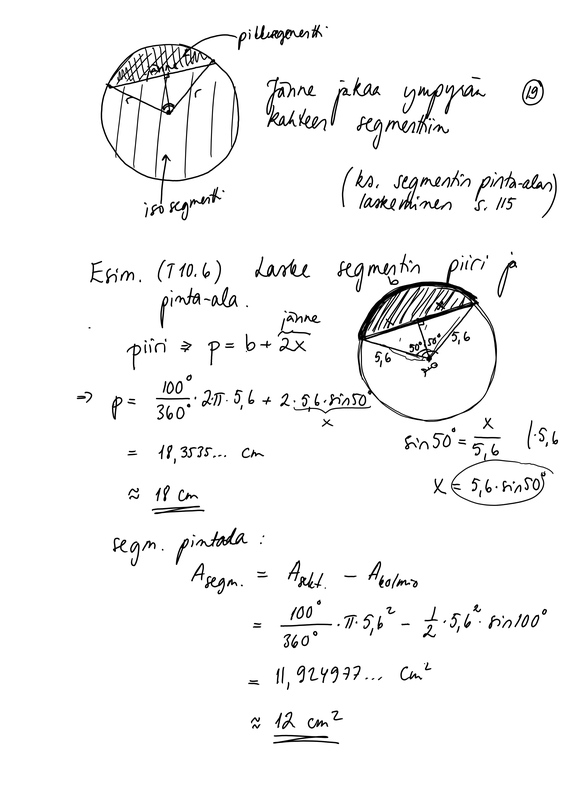 pikkusegmentti
jänne
r
r
isosegmentti
Jänne jakaa ympyrän
kahteen segmenttiin
19
(ks. segmentin pinta-alan
laskeminen s. 115)
Esim. (T10.6) Laske segmentin piiri ja
pinta-ala.
b
x
x
50° 50°
5,6
5,6
jänne
piiri ⇒ p = b + 2x
⇒ p = 100°/360° · 2π · 5,6 + 2 · 5,6 · sin50°
x
= 18,3535... cm
≈ 18 cm
sin50° = x/5,6 | · 5,6
x = 5,6 · sin50°
segm. pintala :
Asegm. = Asekt. − Akolmio
= 100°/360° · π · 5,6² − 1/2 · 5,6² · sin100°
= 11,924977... cm²
≈ 12 cm²